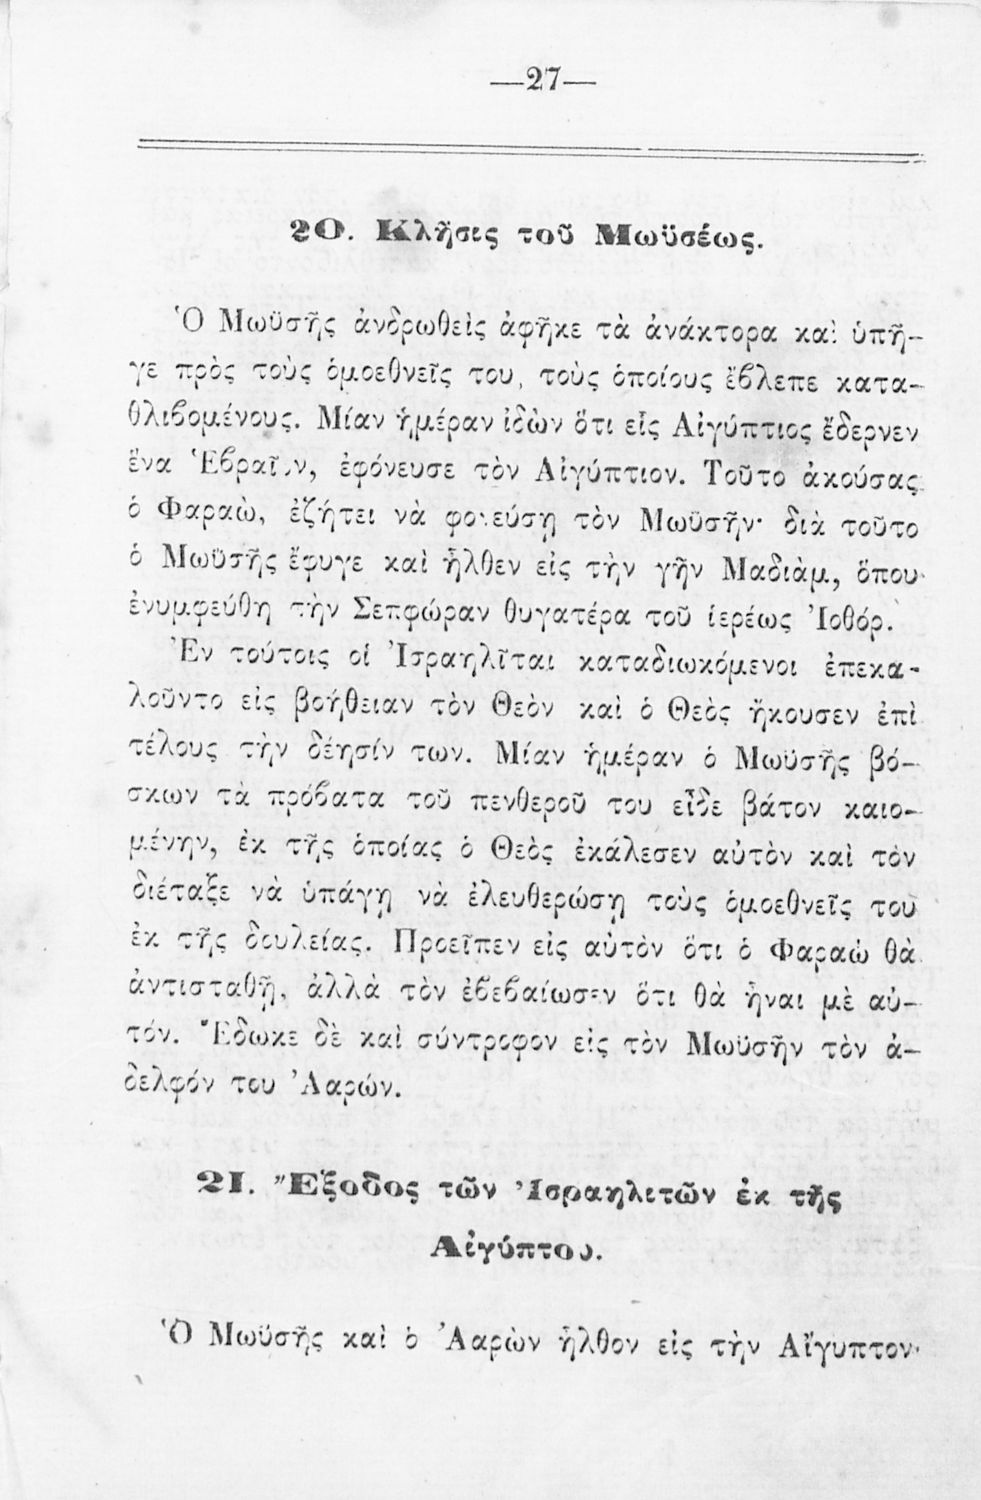 —27—
20. Κλῆσις τοῦ Μωϋσέως.
Ὁ Μωϋσῆς ἀνδρωθεὶς ἀφῆκε τὰ ἀνάκτορα καὶ ὑπῆ-
γε πρὸς τοὺς ὁμοεθνεῖς του, τοὺς ὁποίους ἔβλεπε κατα-
θλιβομένους. Μίαν ἡμέραν ἰδὼν ὅτι εἷς Αἰγύπτιος ἔδερνεν
ἕνα Ἑβραῖον, ἐφόνευσε τὸν Αἰγύπτιον. Τοῦτο ἀκούσας
ὁ Φαραὼ, ἐζήτει νὰ φονεύσῃ τὸν Μωϋσῆν· διὰ τοῦτο
ὁ Μωϋσῆς ἔφυγε καὶ ἦλθεν εἰς τὴν γῆν Μαδιὰμ, ὅπου
ἐνυμφεύθη τὴν Σεπφώραν θυγατέρα τοῦ ἱερέως Ἰοθόρ.
Ἐν τούτοις οἱ Ἰσραηλῖται καταδιωκόμενοι ἐπεκα-
λοῦντο εἰς βοήθειαν τὸν Θεὸν καὶ ὁ Θεὸς ἤκουσεν ἐπὶ
τέλους τὴν δέησίν των. Μίαν ἡμέραν ὁ Μωϋσῆς βό-
σκων τὰ πρόβατα τοῦ πενθεροῦ του εἶδε βάτον καιο-
μένην, ἐκ τῆς ὁποίας ὁ Θεὸς ἐκάλεσεν αὐτὸν καὶ τὸν
διέταξε νὰ ὑπάγῃ νὰ ἐλευθερώσῃ τοὺς ὁμοεθνεῖς του
ἐκ τῆς δουλείας. Προεῖπεν εἰς αὐτὸν ὅτι ὁ Φαραὼ θὰ
ἀντισταθῇ, ἀλλὰ τὸν ἐβεβαίωσεν ὅτι θὰ ἦναι μὲ αὐ-
τόν. Ἔδωκε δὲ καὶ σύντροφον εἰς τὸν Μωϋσῆν τὸν ἀ-
δελφόν του Ἀαρών.
21. Ἔξοδος τῶν Ἰσραηλιτῶν ἐκ τῆς
Αἰγύπτου.
Ὁ Μωϋσῆς καὶ ὁ Ἀαρὼν ἦλθον εἰς τὴν Αἴγυπτον·